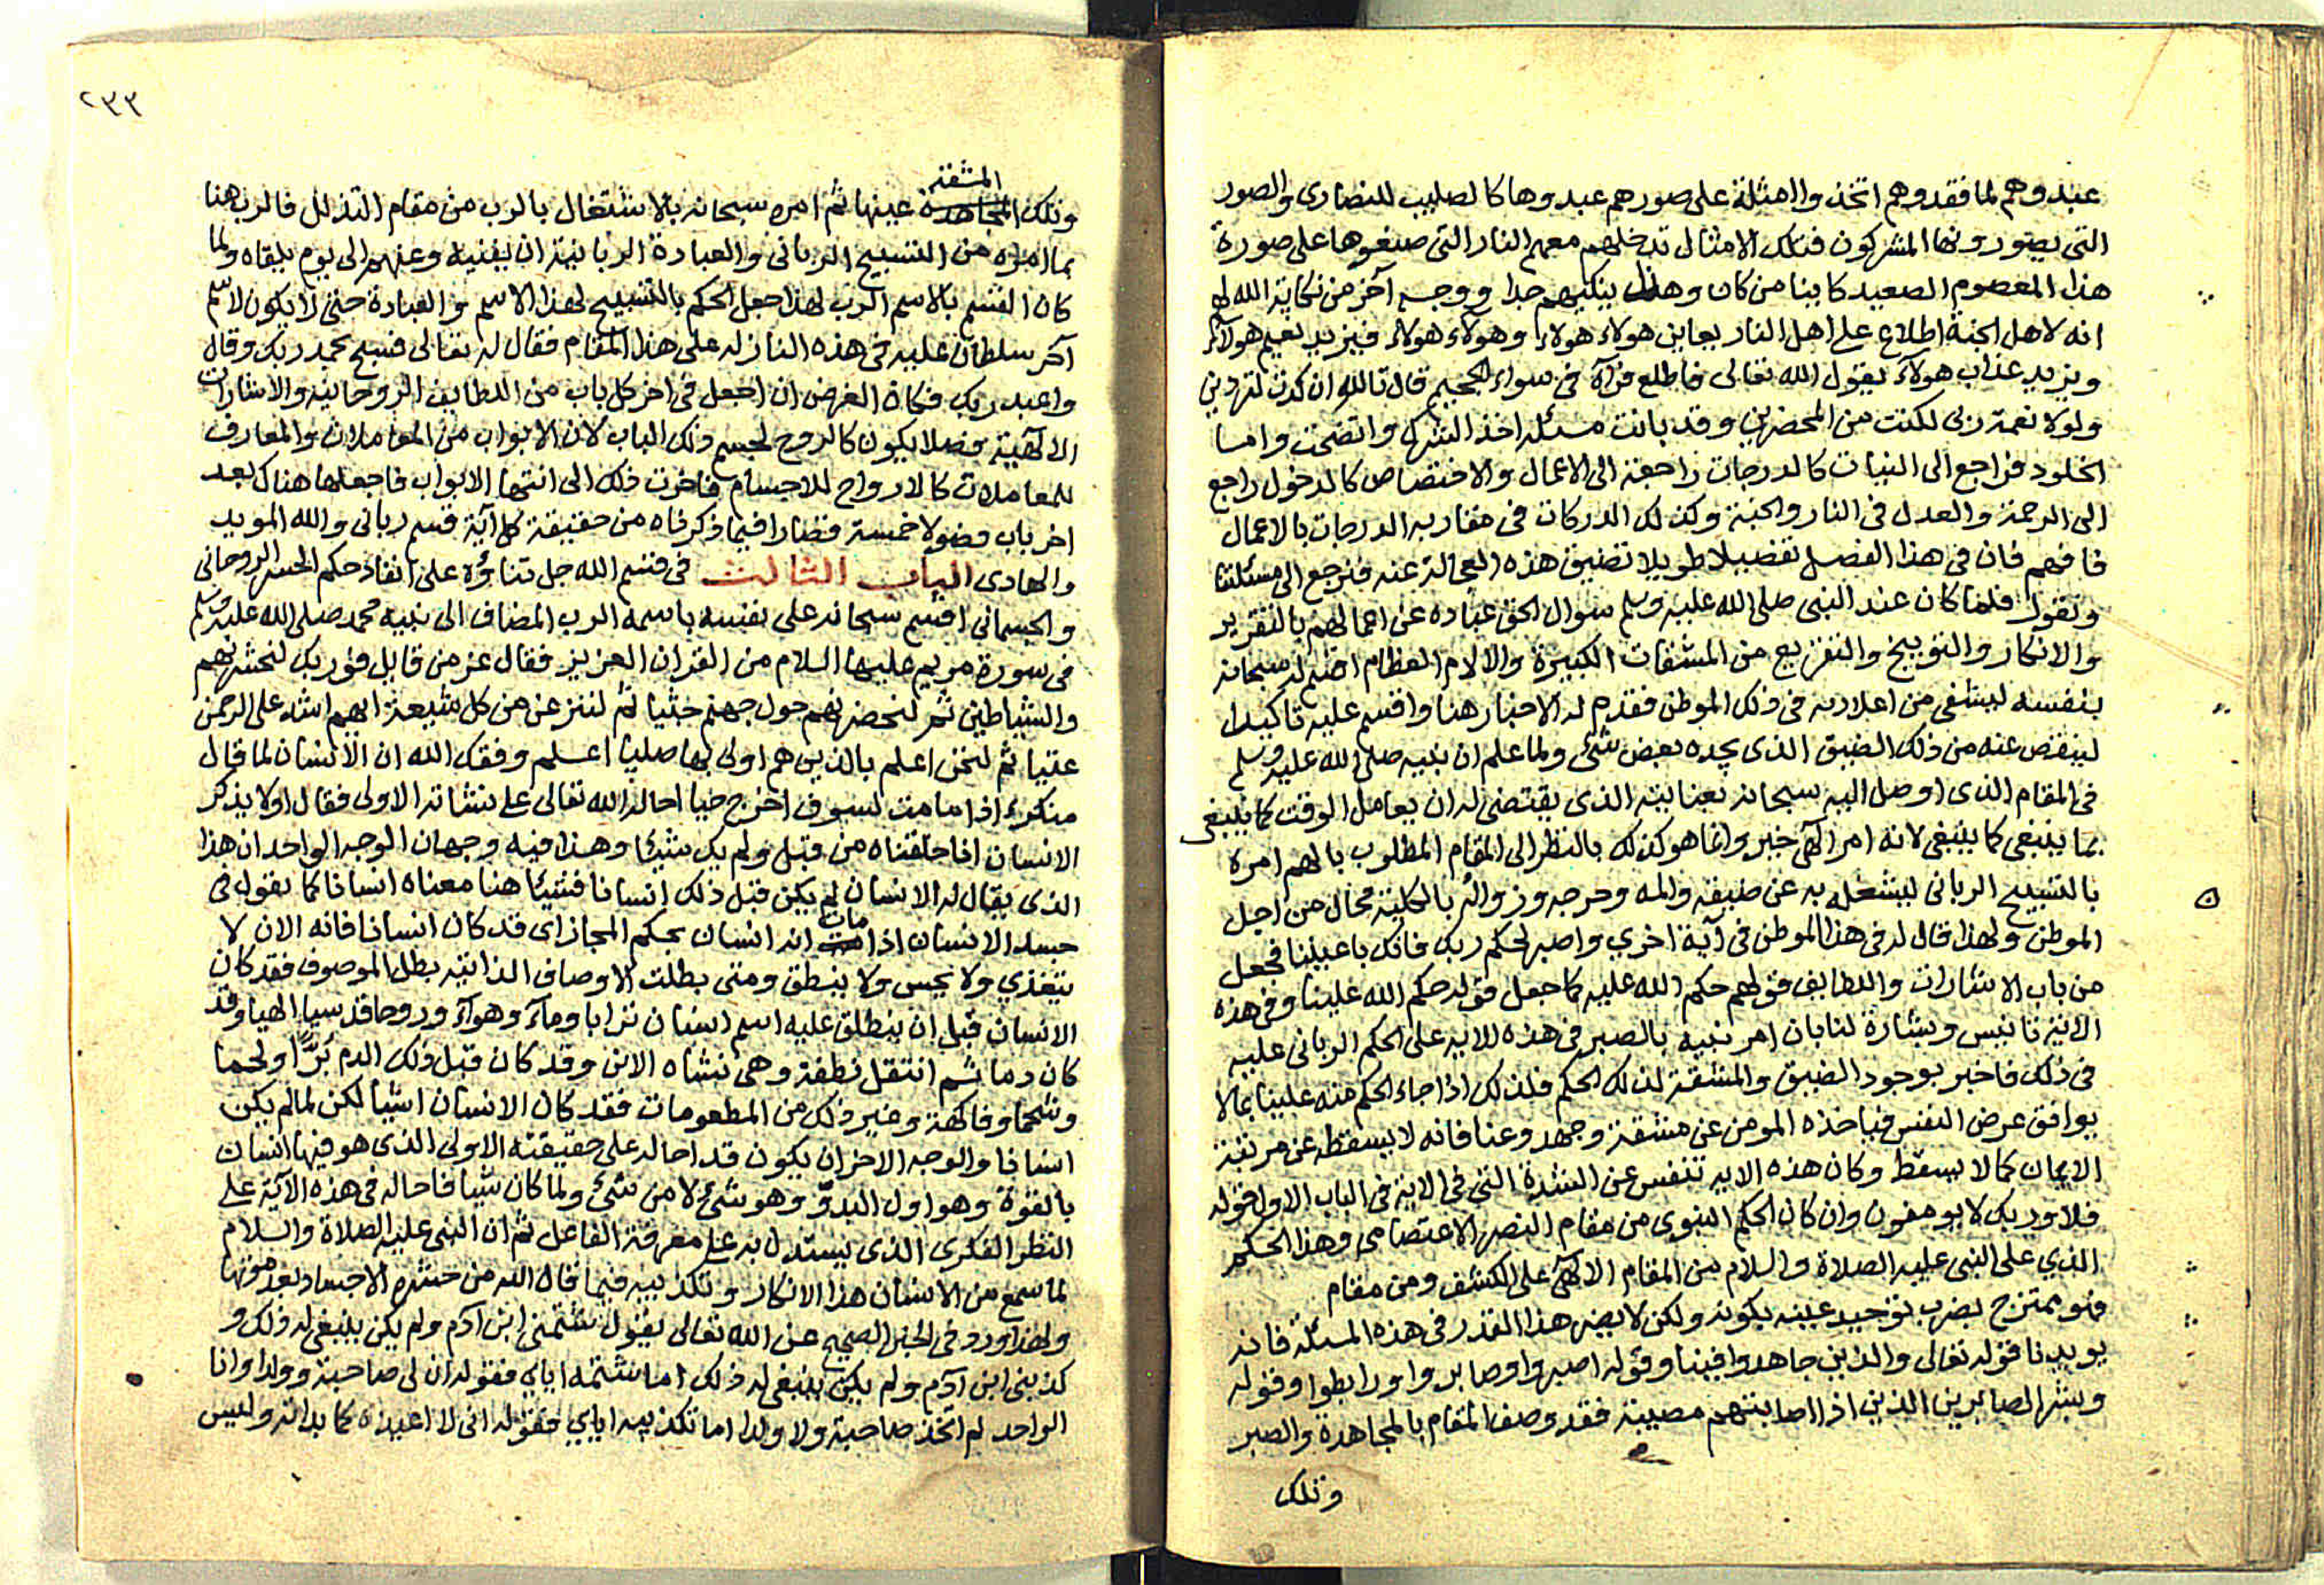 عبدوهم لما فقدوهم اتخذوا الامثلة على صورهم عبدوها كالصليب للنصارى والصور
التى يصورونها المشركون فتلك الامثال تدخلهم معهم النار التى صنعوها على صورة
هذا المعصوم السعيد كاينا من كان وهذا ينكيهم جدا ووجه آخر من نكاية الله لهم
انه لاهل الجنة اطلاع على اهل النار يعاين هولاء هولاء وهولاء هولاء فيزيد نعيم هولآء
ويزيد عذاب هولآء يقول الله تعالى فاطلع فرآه فى سواء الجحيم قال تالله ان كدت لتردين
ولولا نعمة ربى لكنت من المحضرين وقد بانت مسئلة اخذ الشرك واتضحت واما
الخلود فراجع الى النيات كالدرجات راجعة الى الاعمال والاختصاص كالدخول راجع
الى الرحمة والعدل فى النار والجنة وكذلك الدركات فى مقاربه الدرجات بالاعمال
فافهم فان فى هذا الفصل تفصيلا طويلا تضيق هذه العجالة عنه فنرجع الى مسئلتنا
ونقول فلما كان عند النبى صلى الله عليه وسلم سوال الحق عباده عن اعمالهم بالتقرير
والانكار والتوبيخ والتقزيع من المشقات الكبيرة والالام العظام اقسم له سبحانه
بنفسه ليشفى من اعلاديه فى ذلك الموطن فقدم له الاخبار هنا واقسم عليه تاكيدا
لينقص عنه من ذلك الضيق الذى يجده بعض شئ ولما علم ان نبيه صلى الله عليه وسلم
فى المقام الذى اوصل اليه سبحانه بعنايته الذى يقتضى له ان يعامل الوقت كما ينبغى
بما ينبغى كما ينبغى لانه امر آلهى خبر وانما هو كذلك بالنظر الى المقام المطلوب بالهم امره
بالتسبيح الربانى ليشغله به عن ضيقه والمه وحرجه وزواله بالكلية محال من اجل
الموطن ولهذا قال له فى هذا الموطن فى آية اخري واصبر لحكم ربك فانك باعيننا فجعل
من باب الاشارات واللطايف قولهم حكم الله عليه كما جعل قوله حكم الله علينا وفى هذه
الاية تانيس وبشارة لنا بان امر نبيه بالصبر فى هذه الايه على الحكم الربانى عليه
فى ذلك فاخبر بوجود الضيق والمشقة لذلك الحكم فلذلك اذا جاء الحكم منه علينا بما لا
يوافق عرض النفس فياخذه المومن عن مشقة وجهد وعنا فانه لا يسقط عن مرتبة
الايمان كما لا يسقط وكان هذه الايه تنفس عن الشدة التى فى الاية فى الباب الاول قوله
فلا وربك لا يومنون وان كان الحكم النبوى من مقام النصر الاعتصامى وهذا الحكم
الذي على النبى عليه الصلاة والسلام من المقام الالهى على الكشف ومن مقام
فهو ممتزج بضرب توحيد عينه يكونه ولكن لا يضر هذا القدر فى هذه المسئلة فانه
يويدنا قوله تعالى والذين جاهدوا فينا وقوله اصبروا وصابروا ورابطوا وقوله
وبشر الصابرين الذين اذا اصابتهم مصيبة فقد وصف المقام بالمجاهدة والصبر
وتلك
٢٣٣
المشقة
وتلك المجاهدة عينها ثم امره سبحانه بالاشتغال بالرب من مقام التذلل فالرب هنا
بما امره من التسبيح الربانى والعبادة الربانية ان يفنيه وعنهم الى يوم يلقاه ولما
كان القسم بالاسم الرب لهذا جعل الحكم بالتسبيح لهذا الاسم والعبادة حتى لا يكون لاسم
آخر سلطان عليه فى هذه النازله على هذا المقام فقال له تعالى فسبح بحمد ربك وقال
واعبد ربك فكان الغرض ان اجعل فى اخر كل باب من اللطايف الروحانية والاشارات
الالهية فصلا يكون كالروح لجسم ذلك الباب لان الابواب من المعاملات والمعارف
للمعاملات كالارواح للاجسام فاخرت ذلك الى انتها الابواب فاجعلها هناك بعد
اخر باب فصولا خمسة فصار فيما ذكرناه من حقيقة كل آية قسم ربانى والله المويد
والهادى الباب الثالث فى قسم الله جل تناؤه على انفاذ حكم الحشر الروحانى
والجسمانى اقسم سبحانه على نفسه باسمه الرب المضاف الى نبيه محمد صلى الله عليه وسلم
فى سورة مريم عليها السلام من القران العزيز فقال عز من قايل فوربك لنحشرنهم
والشياطين ثم لنحضرنهم حول جهنم جثيا ثم لننزعن من كل شيعة ايهم اشد على الرحمن
عتيا ثم لنحن اعلم بالذين هم اولى بها صليا اعلم وفقك الله ان الانسان لما قال
منكره اذا ما مت لسوف اخرج حيا احاله الله تعالى على نشاته الاولى فقال اولا يذكر
الانسان انا خلقناه من قبل ولم يك شيئا وهذا فيه وجهان الوجه الواحد ان هذا
الذى يقال له الانسان لم يكن قبل ذلك انسانا فشيئا هنا معناه انسانا كما نقول فى
جسد الانسان اذا مات انه انسان بحكم المجاز اى قد كان انسانا فانه الان لا
يتغذي ولا يحس ولا ينطق ومتى بطلت الاوصاف الذاتية بطل الموصوف فقد كان
الانسان قبل ان ينطلق عليه اسم انسان ترابا ومآء وهوآء وروحا قدسيا الهيا وقد
كان دما ثم انتقل نطفة وهى نشاه الابن وقد كان قبل ذلك الدم بُرًّا ولحما
وشحما وفاكهة وغير ذلك من المطعومات فقد كان الانسان اشيا لكن لما لم يكن
انسانا والوجه الاخر ان يكون قد احاله على حقيقته الاولى الذى هو فيها انسان
بالقوة وهو اول البدوّ وهو شئ لا من شئ ولما كان شيا فاحاله فى هذه الآية على
النظر الفكرى الذى يستدل به على معرفة الفاعل ثم ان النبى عليه الصلاة والسلام
لما سمع من الانسان هذا الانكار وتكذيبه فيما قال الله من حشره الاجساد بعد موتها
ولهذا ورد فى الخبر الصحيح عن الله تعالى يقول شتمنى ابن آدم ولم يكن ينبغى له ذلك و
كذبنى ابن آدم ولم يكن ينبغى له ذلك اما شتمه اياي فقوله ان لى صاحبة وولدا وانا
الواحد لم اتخذ صاحبة ولا ولدا اما تكذيبه اياي فقوله انى لا اعيده كما بداته وليس